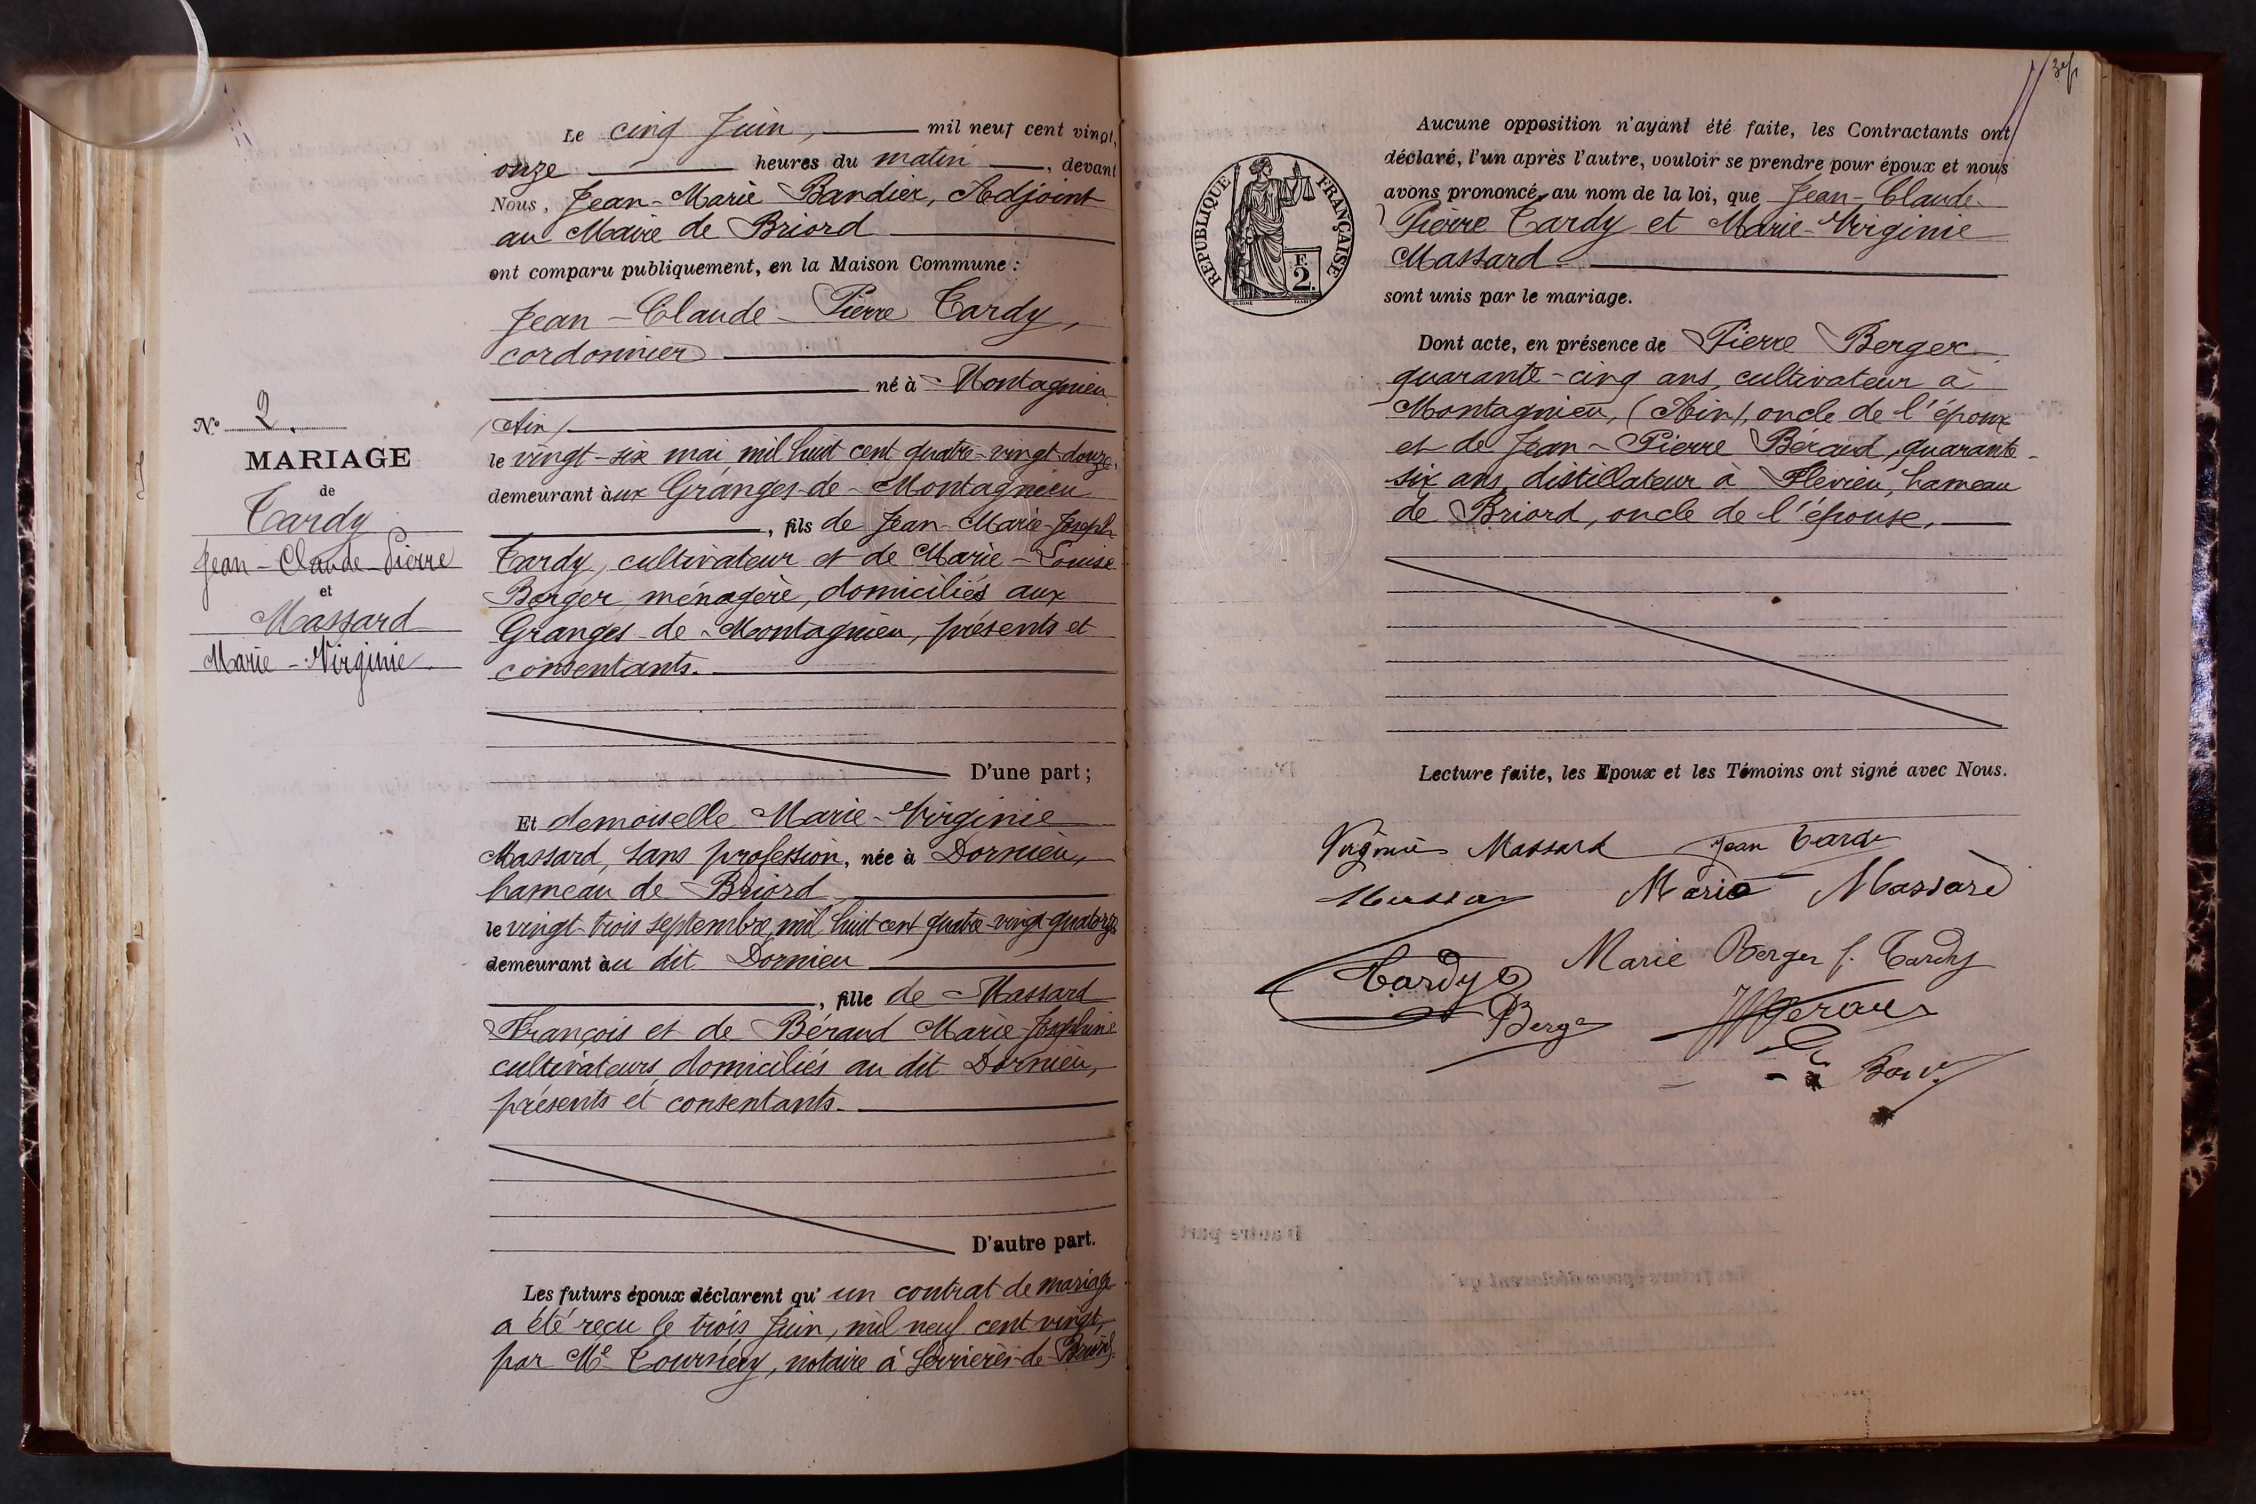 Le cinq Juin, mil neuf cent vingt,
onze heures du matin, devant
Nous, Jean-Marie Bandier, Adjoint
au Maire de Briord
ont comparu publiquement, en la Maison Commune :
Jean-Claude-Pierre Tardy,
cordonnier
né à Montagnieu
(Ain)
le vingt-six mai mil huit cent quatre-vingt-douze,
demeurant àux Granges-de-Montagnieu
, fils de Jean-Marie-Joseph
Tardy, cultivateur et de Marie-Louise
Berger, ménagère, domiciliés aux
Granges-de-Montagnieu, présents et
consentants.
D'une part ;
Et demoiselle Marie-Virginie
Massard, sans profession, née à Dornieu,
hameau de Briord
le vingt-trois septembre, mil huit cent quatre-vingt-quatorze
demeurant àu dit Dornieu
, fille de Massard
François et de Béraud Marie-Joséphine
cultivateurs, domiciliés au dit Dornieu,
présents et consentants.
D'autre part.
Les futurs époux déclarent qu'un contrat de mariage
a été reçu le trois Juin, mil neuf cent vingt,
par Me Tournery, notaire à Serrières-de-Briord.
No 2.
MARIAGE
de
Tardy
Jean-Claude-Pierre
et
Massard
Marie-Virginie
REPUBLIQUE FRANÇAISE
F.
2.
Aucune opposition n'ayant été faite, les Contractants ont
déclaré, l'un après l'autre, vouloir se prendre pour époux et nous
avons prononcé, au nom de la loi, que Jean-Claude-
Pierre Tardy et Marie-Virginie
Massard
sont unis par le mariage.
Dont acte, en présence de Pierre Berger
quarante-cinq ans, cultivateur à
Montagnieu, (Ain), oncle de l'époux
et de Jean-Pierre Béraud, quarante-
six ans, distillateur à Flévieu, hameau
de Briord, oncle de l'épouse.
Lecture faite, les Epoux et les Témoins ont signé avec Nous.
Virginie Massard Jean Tardy
Marie Massard
Marie Berger f. Tardy
Tardy
Berger